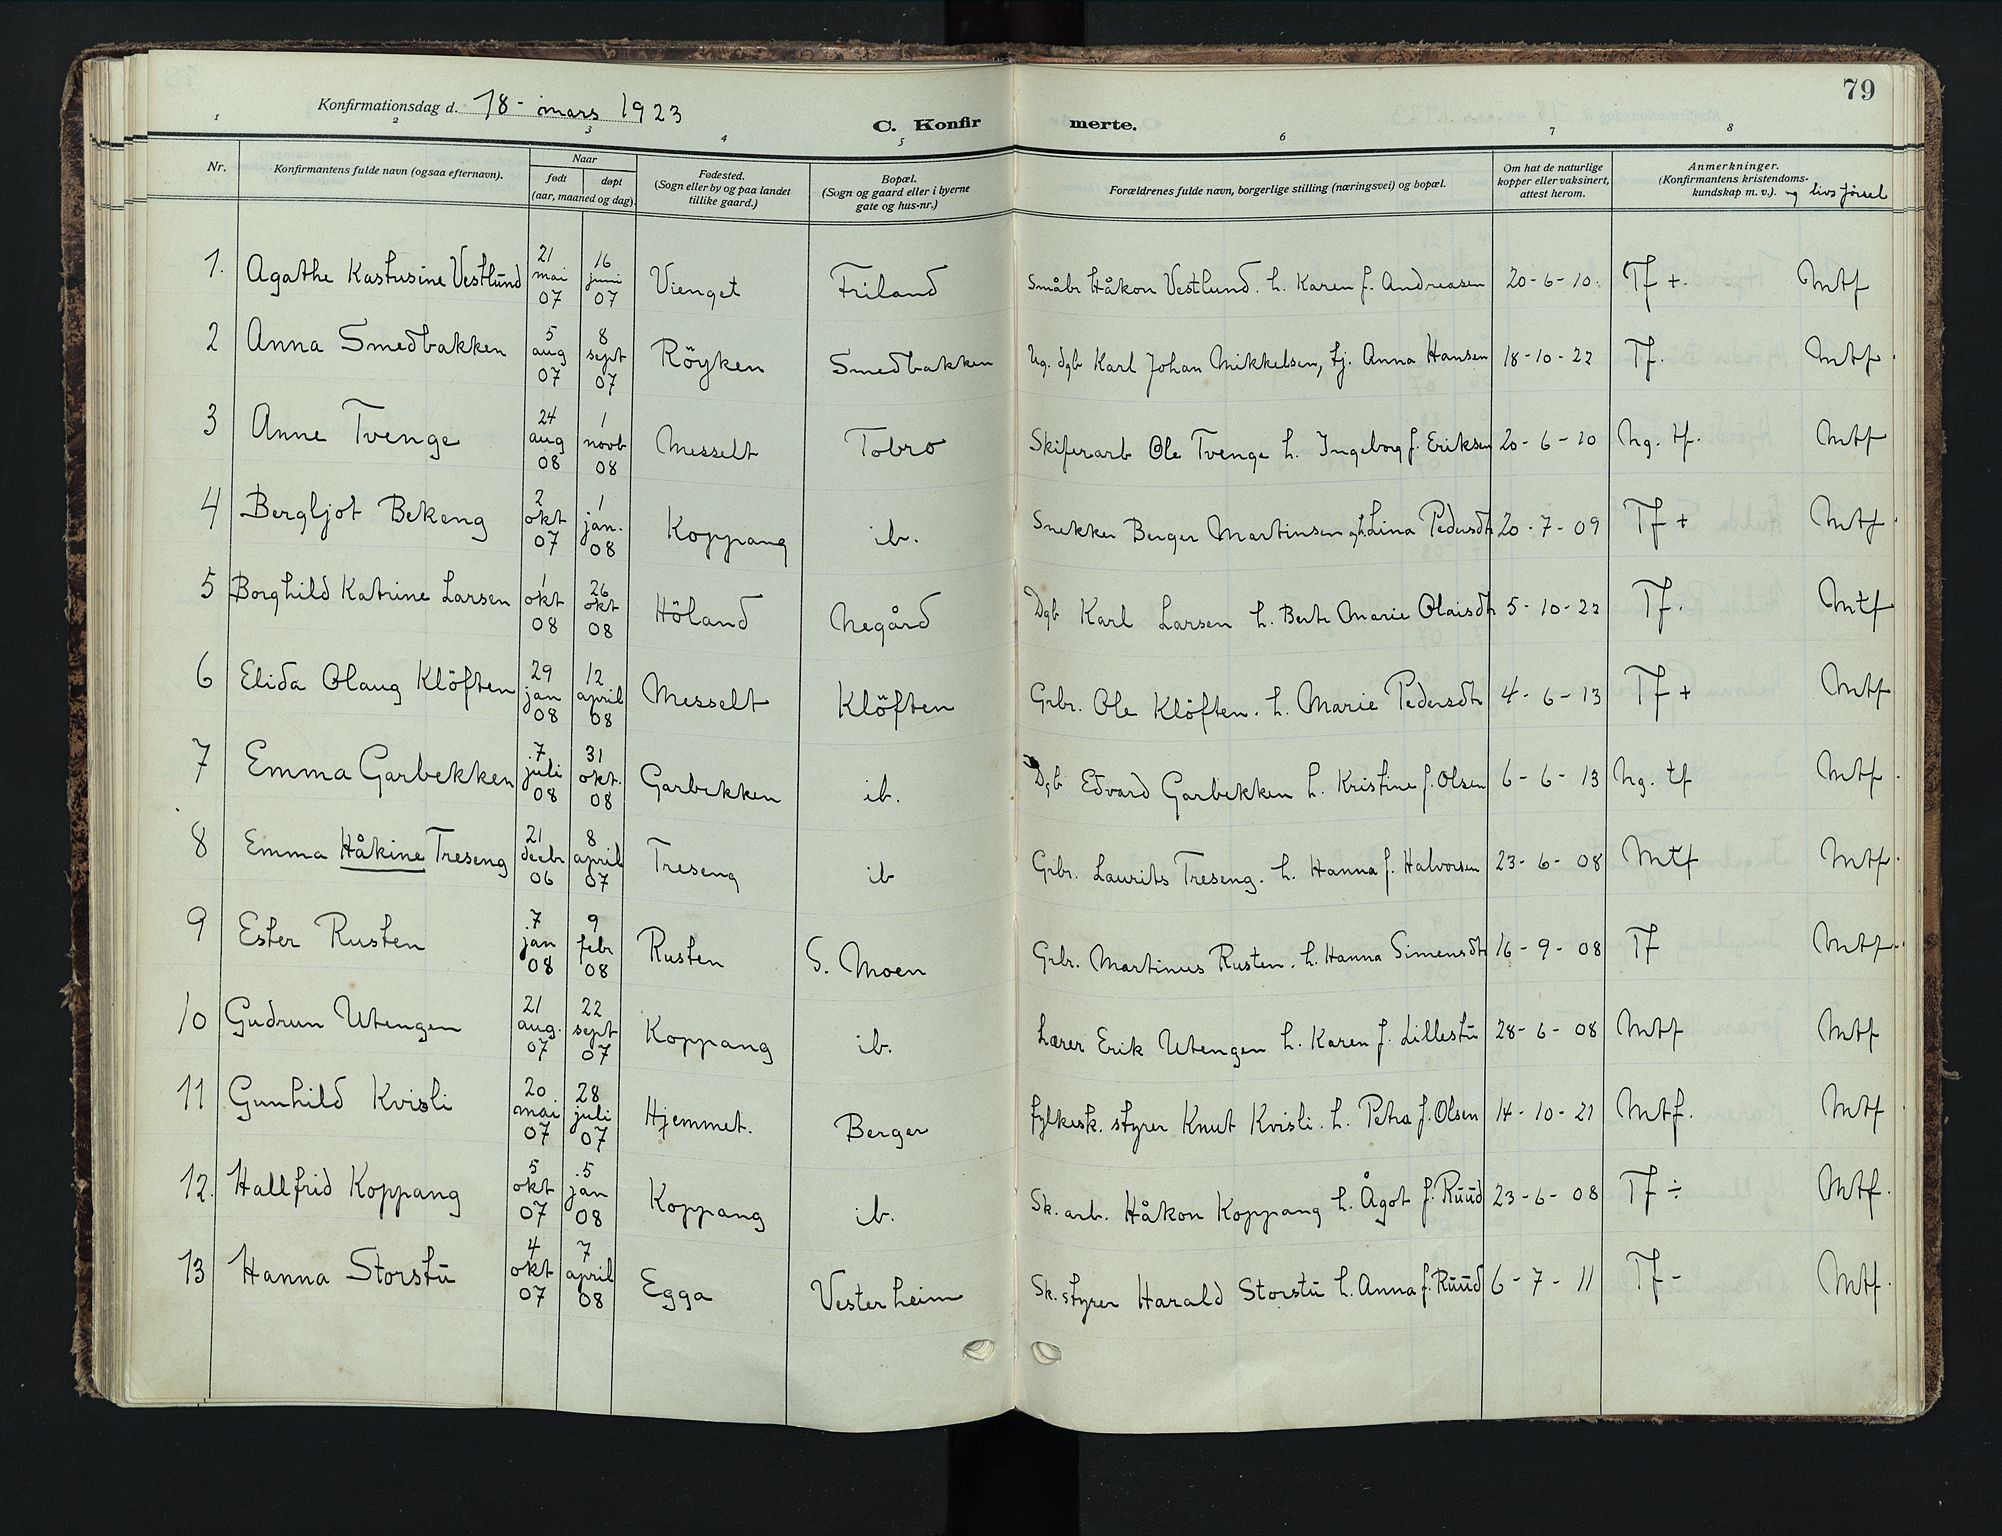 79
Konfirmationsdag d. 18 - mars 1923
C. Konfirmerte.
1 2 3 4 5 6 7 8
Nr. Konfirmantens fulde navn (ogsaa efternavn). Naar født døpt (aar, maaned og dag) Fødested. (Sogn eller by og paa landet tillike gaard.) Bopæl. (Sogn og gaard eller i byerne gate og hus-nr.) Forældrenes fulde navn, borgerlige stilling (næringsvei) og bopæl. Om hat de naturlige kopper eller vaksinert, attest herom. Anmerkninger. (Konfirmantens kristendoms-kundskap m. v.). og livsførsel
1. Agathe Kastusine Vestlund 21 mai 07 16 juni 07 Vienget Friland Småbr Håkon Vestlund. h. Karen f. Andreasen 20-6-10. Tf +. Mtf
2 Anna Smedbakken 5 aug 07 8 sept 07 Röyken Smedbakken Ug. dgb Karl Johan Mikkelsen, tj. Anna Hansen 18-10-22 Tf. Mtf.
3 Anne Tvenge 24 aug 08 1 novb 08 Messelt Tobro Skiferarb Ole Tvenge h. Ingeborg f. Eriksen 20-6-10 Ng. tf. Mtf
4 Bergljot Bekeng 2 okt 07 1 jan. 08 Koppang ib. Snekker Berger Martinsen og h. Lina Pedersdtr 20-7-09 Tf + Mtf.
5 Borghild Katrine Larsen 1 okt 08 26 okt 08 Höland Negård Dgb Karl Larsen h. Berte Marie Olaisdtr 5-10-22 Tf. Mtf
6 Elida Olaug Klöften 29 jan 08 12 april 08 Messelt Klöften Grbr. Ole Klöften. h. Marie Pedersdtr 4-6-13 Tf + Mtf
7 Emma Garbekken 7 juli 08 31 okt. 08 Garbekken ib. Dgb Edvard Garbekken h. Kristine f. Olsen 6-6-13 Ng. tf Mtf.
8 Emma Håkine Treseng 21 decbr 06 8 april 07 Treseng ib Grbr. Laurits Treseng. h. Hanna f. Halvorsen 23-6-08 Mtf Mtf.
9 Ester Rusten 7 jan 08 9 febr 08 Rusten S. Moen Grbr. Martinus Rusten. h. Hanna Simensdtr 16-9-08 Tf Mtf.
10 Gudrun Utengen 21 aug. 07 22 sept 07 Koppang ib. Lærer Erik Utengen h. Karen f. Lillestu 28-6-08 Mtf Mtf
11 Gunhild Kvisli 20 mai 07 28 juli 07 Hjemmet. Berger fylkessk. styrer Knut Kvisli. h. Petra f. Olsen 14-10-21 Mtf. Mtf.
12. Hallfrid Koppang 5 okt 07 5 jan 08 Koppang ib. Sk. arb. Håkon Koppang h. Ågot f. Ruud 23-6-08 Tf ÷ Mtf.
13 Hanna Storstu 4 okt 07 7 april 08 Egga Vesterheim Sk. styrer Harald Storstu h. Anna f. Ruud 6-7-11 Tf - Mtf.